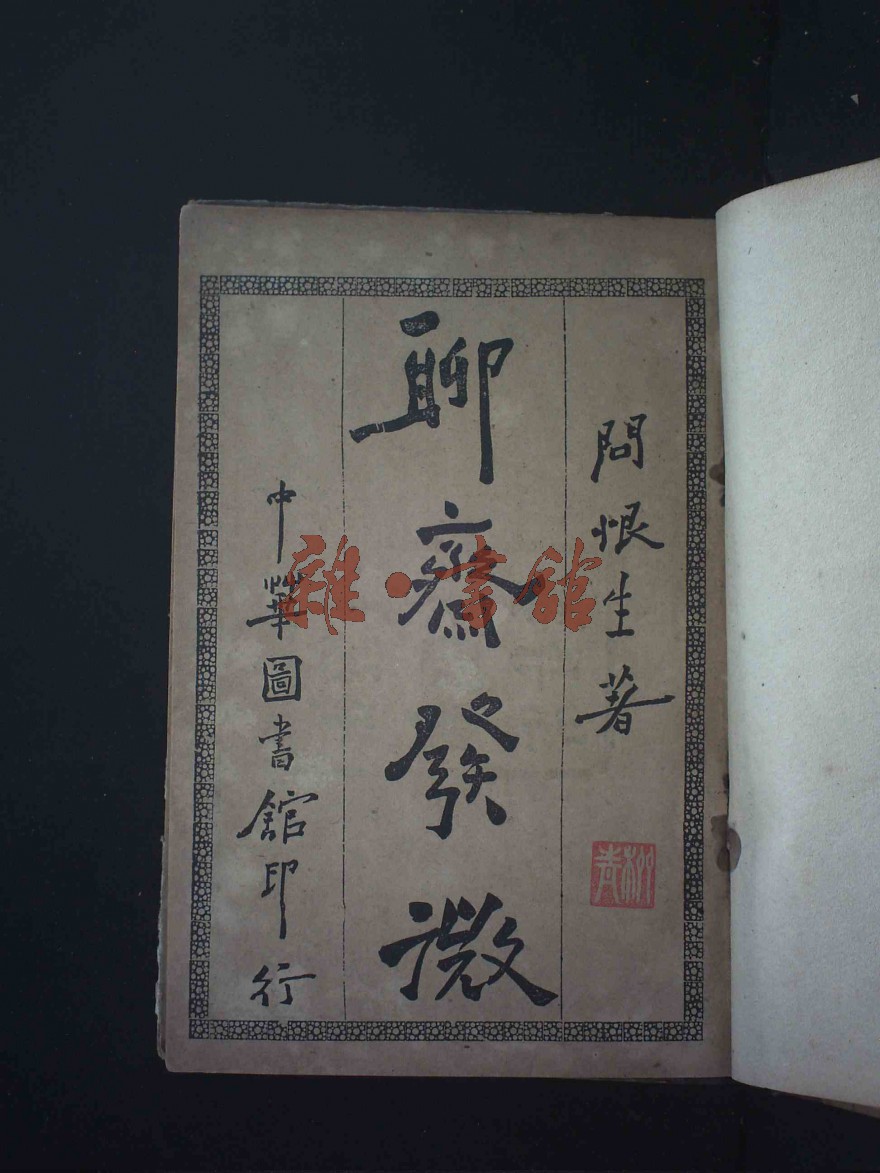 問恨生著
聊齋發微
中華圖書館印行
雜·書館